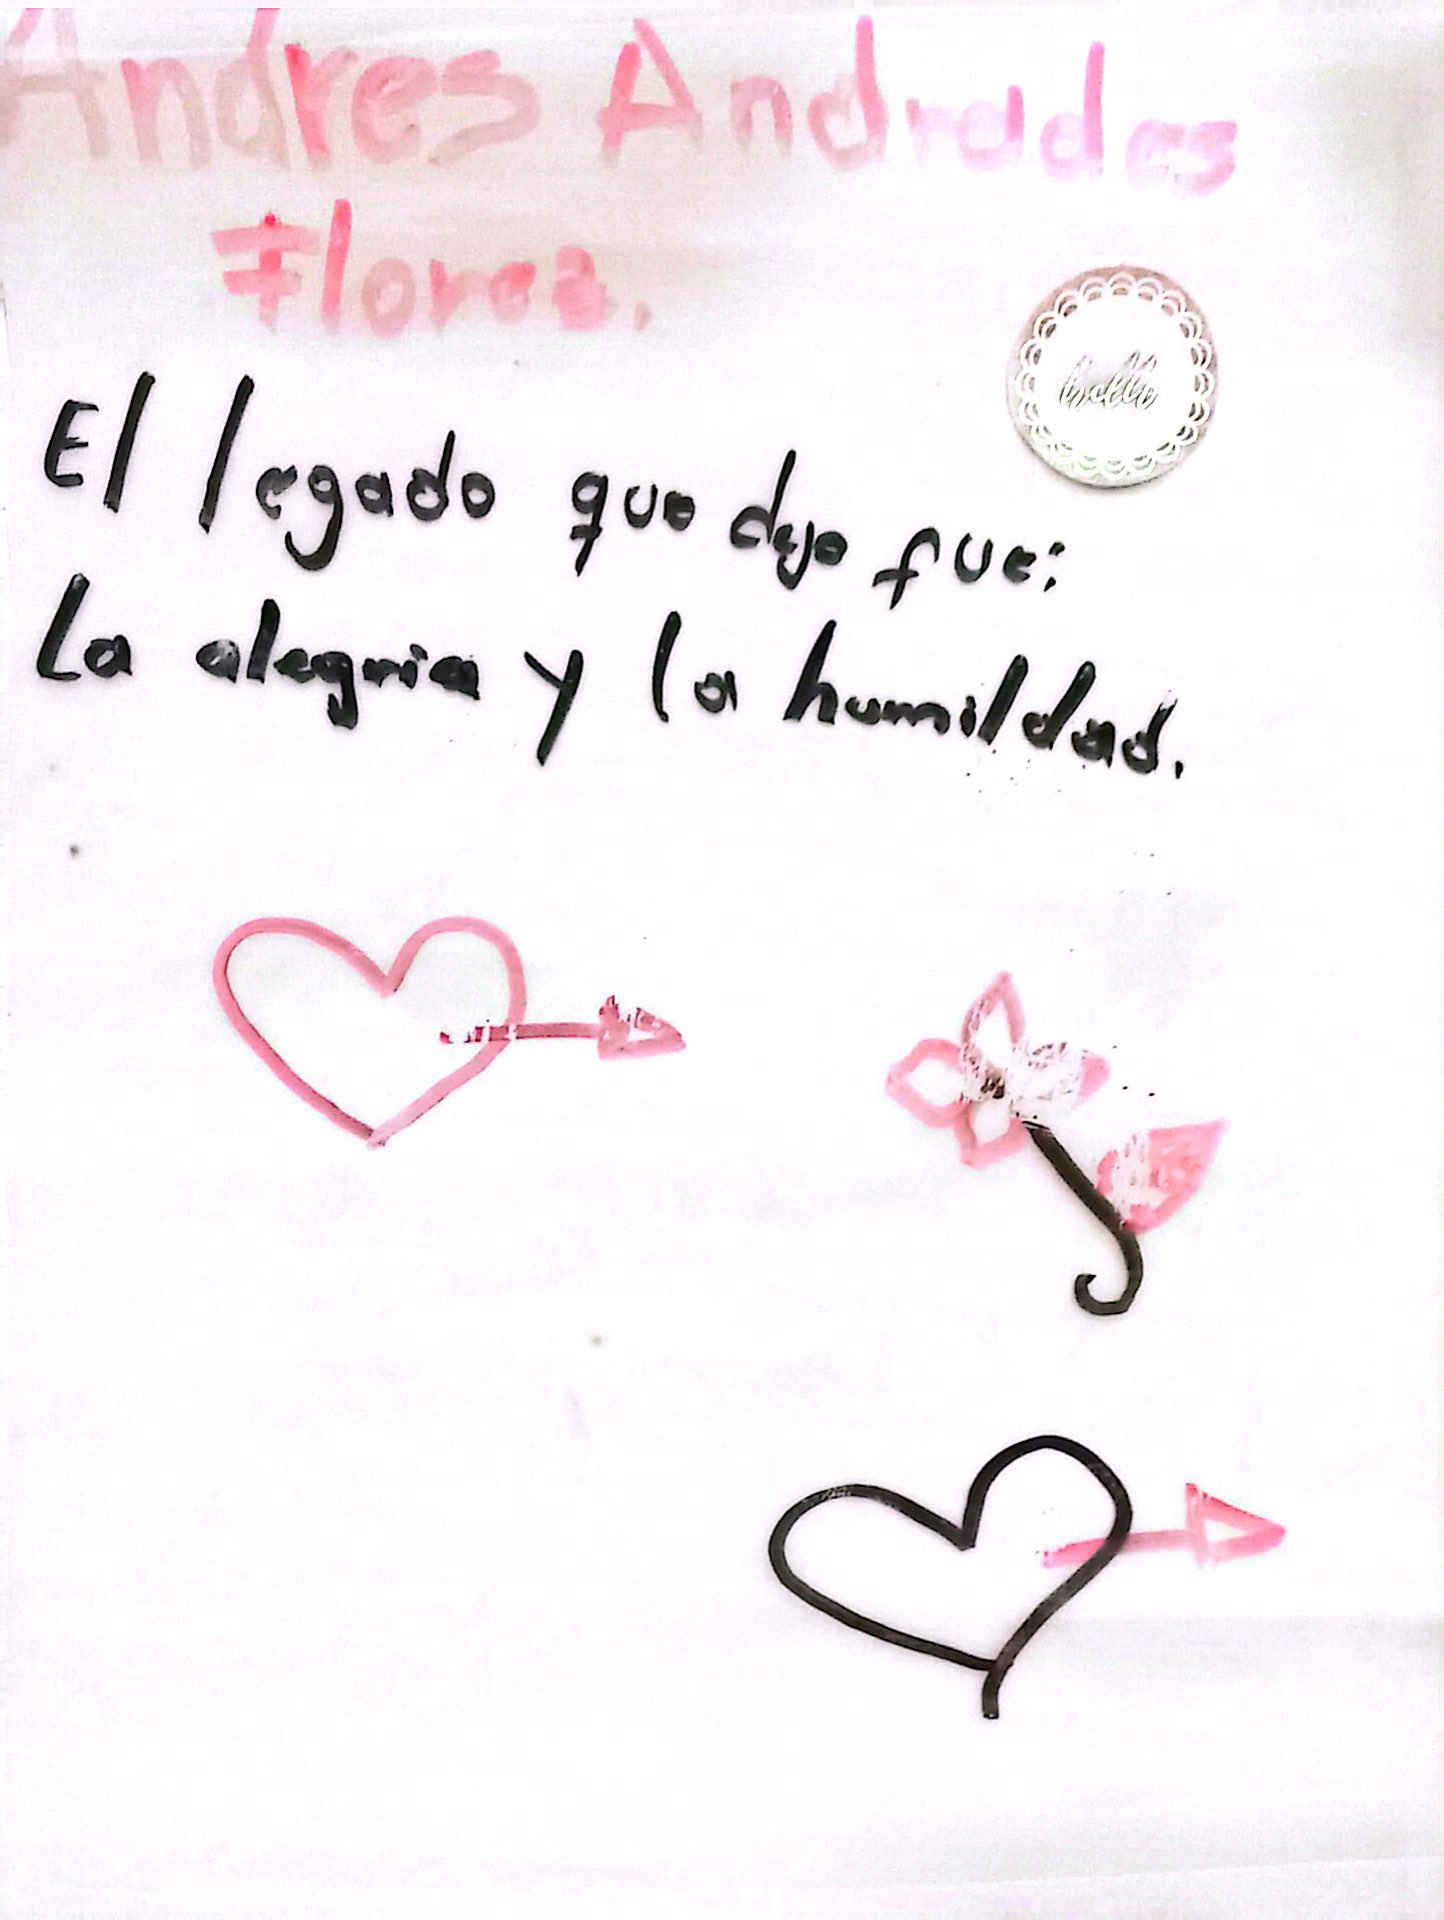 Andres Andrades
Flores.
El legado que dejo fue:
La alegria y la humildad.